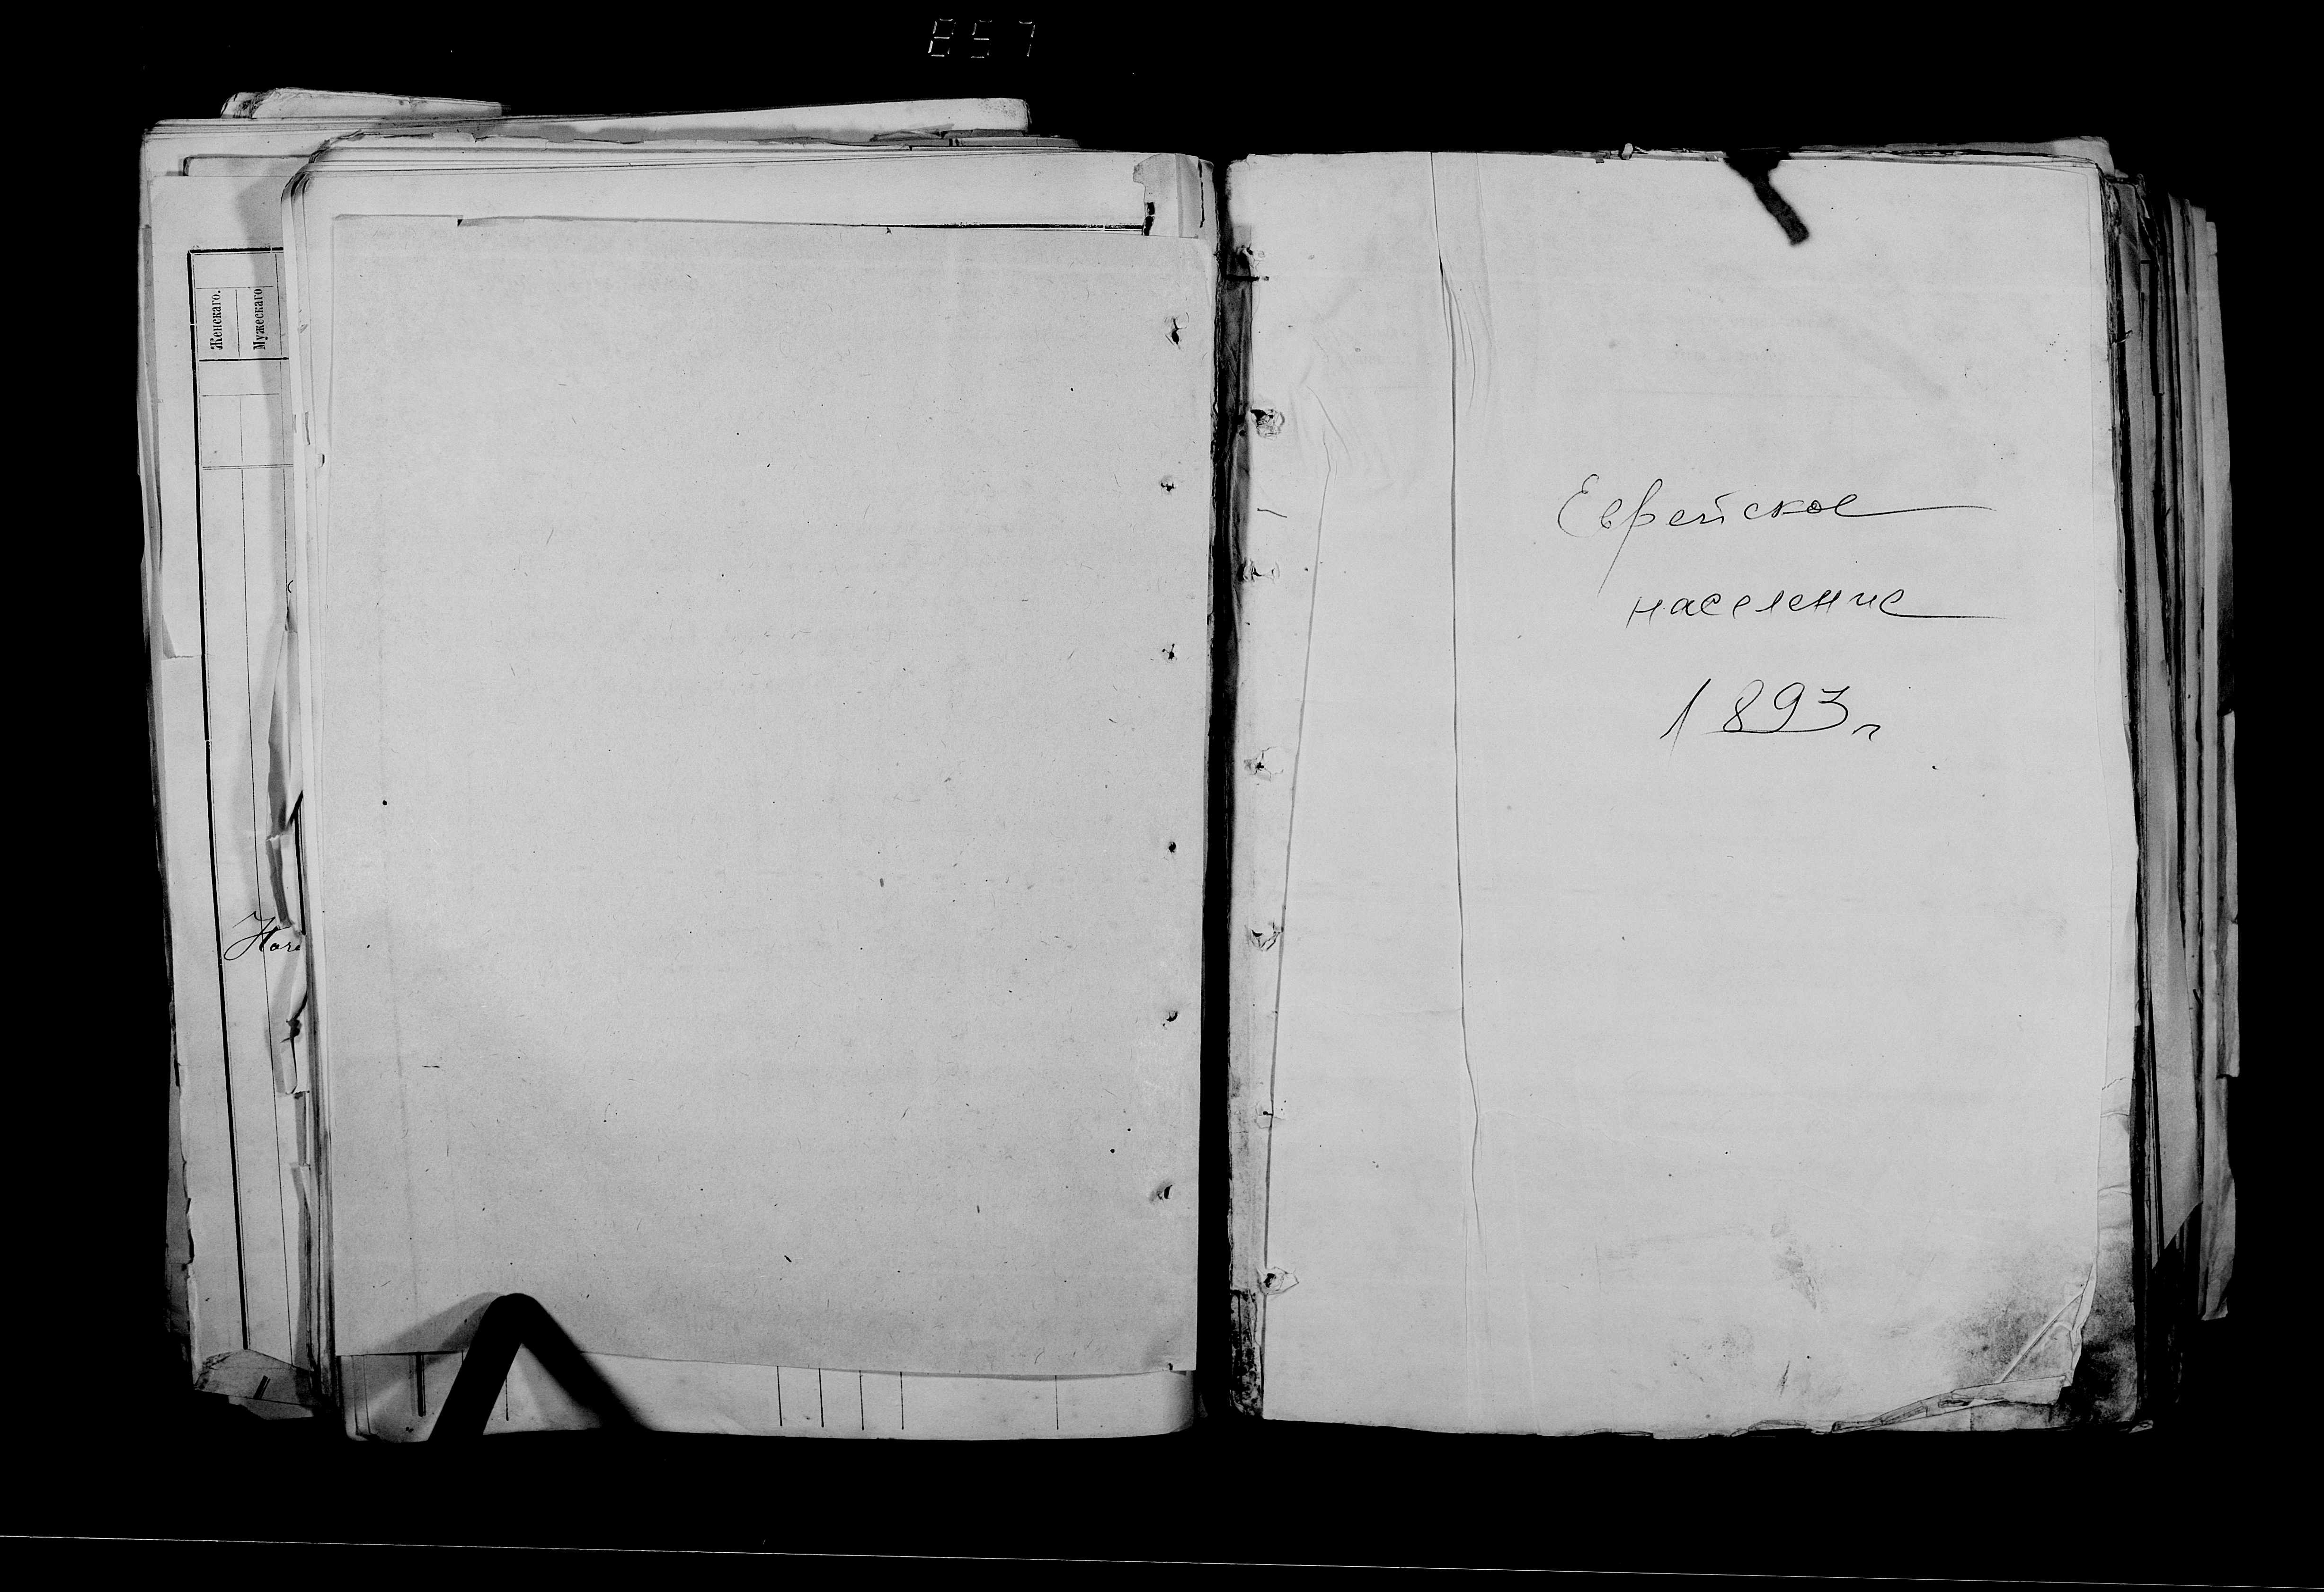 857
Женскаго.
Мужескаго
Еврейское
население
1893 г